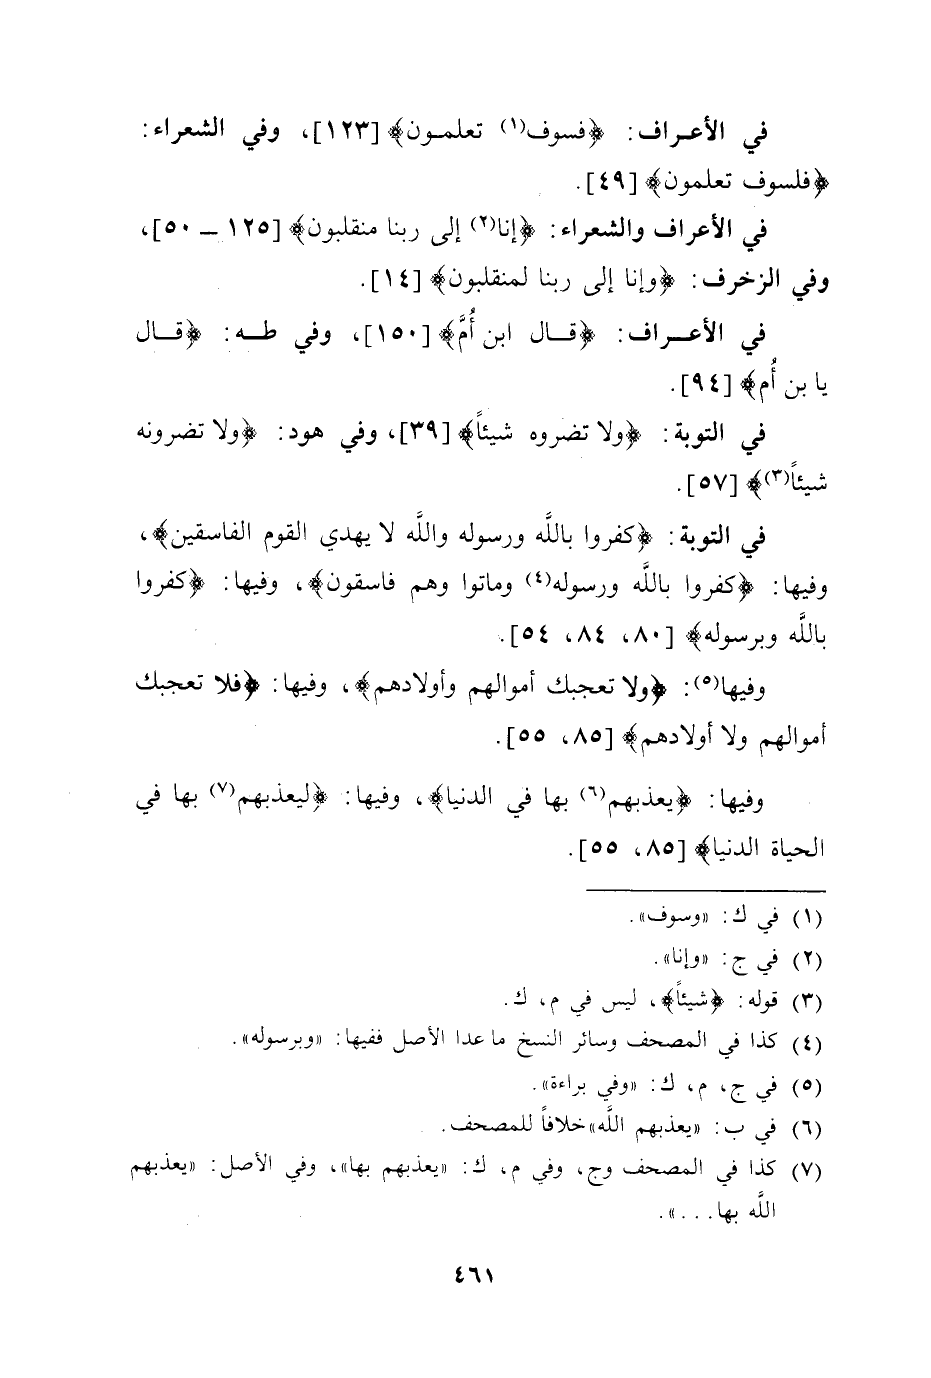 في الأعـراف: ﴿فسوف(١) تعلمـون﴾ [١٢٣]، وفي الشعراء:
﴿فلسوف تعلمون﴾ [٤٩].
في الأعراف والشعراء: ﴿إنا(٢) إلى ربنا منقلبون﴾ [١٢٥ – ٥٠]،
وفي الزخرف: ﴿وإنا إلى ربنا لمنقلبون﴾ [١٤].
في الأعـــراف: ﴿قـــال ابن أُمَّ﴾ [١٥٠]، وفي طـــه: ﴿قـــال
يا بن أُم﴾ [٩٤].
في التوبة: ﴿ولا تضروه شيئاً﴾ [٣٩]، وفي هود: ﴿ولا تضرونه
شيئاً(٣)﴾ [٥٧].
في التوبة: ﴿كفروا باللَّه ورسوله واللَّه لا يهدي القوم الفاسقين﴾،
وفيها: ﴿كفروا باللَّه ورسوله(٤) وماتوا وهم فاسقون﴾، وفيها: ﴿كفروا
باللَّه وبرسوله﴾ [٨٠، ٨٤، ٥٤].
وفيها(٥): ﴿ولا تعجبك أموالهم وأولادهم﴾، وفيها: ﴿فلا تعجبك
أموالهم ولا أولادهم﴾ [٨٥، ٥٥].
وفيها: ﴿يعذبهم(٦) بها في الدنيا﴾، وفيها: ﴿ليعذبهم(٧) بها في
الحياة الدنيا﴾ [٨٥، ٥٥].
(١) في ك: «وسوف».
(٢) في ج: «وإنا».
(٣) قوله: ﴿شيئاً﴾، ليس في م، ك.
(٤) كذا في المصحف وسائر النسخ ما عدا الأصل ففيها: «وبرسوله».
(٥) في ج، م، ك: «وفي براءة».
(٦) في ب: «يعذبهم اللَّه» خلافاً للمصحف.
(٧) كذا في المصحف وج، وفي م، ك: «يعذبهم بها»، وفي الأصل: «يعذبهم
اللَّه بها...».
٤٦١